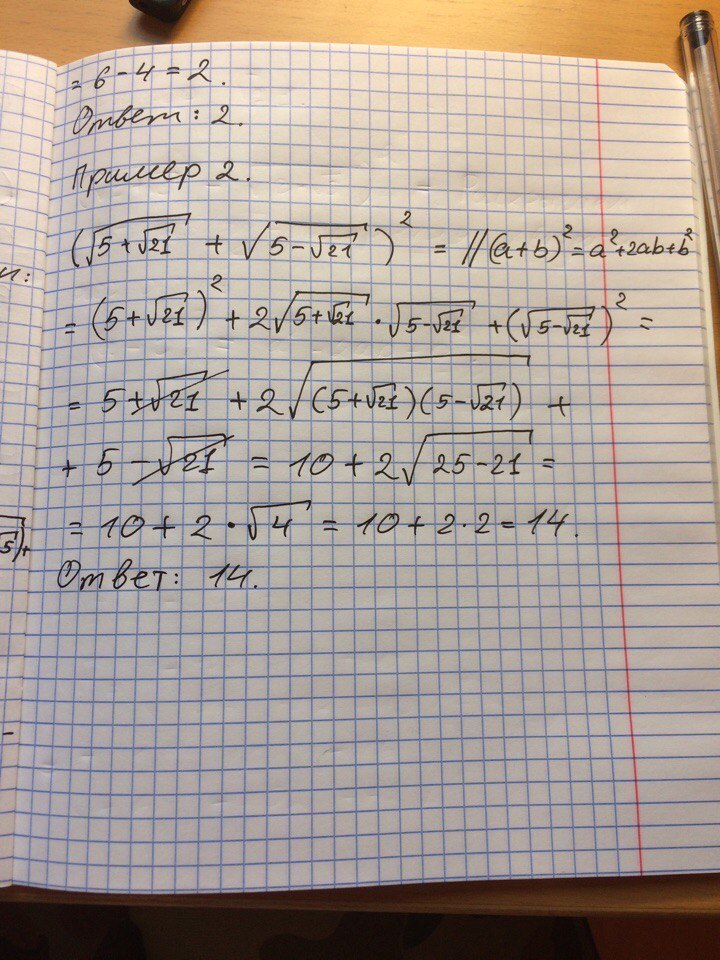 = 6 - 4 = 2.
Ответ: 2.
Пример 2.
(√(5+√21) + √(5-√21))² = //(a+b)² = a²+2ab+b²
= (5+√21)² + 2√(5+√21) · √(5-√21) + (√(5-√21))² =
= 5+√21 + 2√((5+√21)(5-√21)) +
+ 5 - √21 = 10 + 2√(25-21) =
= 10 + 2 · √4 = 10 + 2·2 = 14.
Ответ: 14.